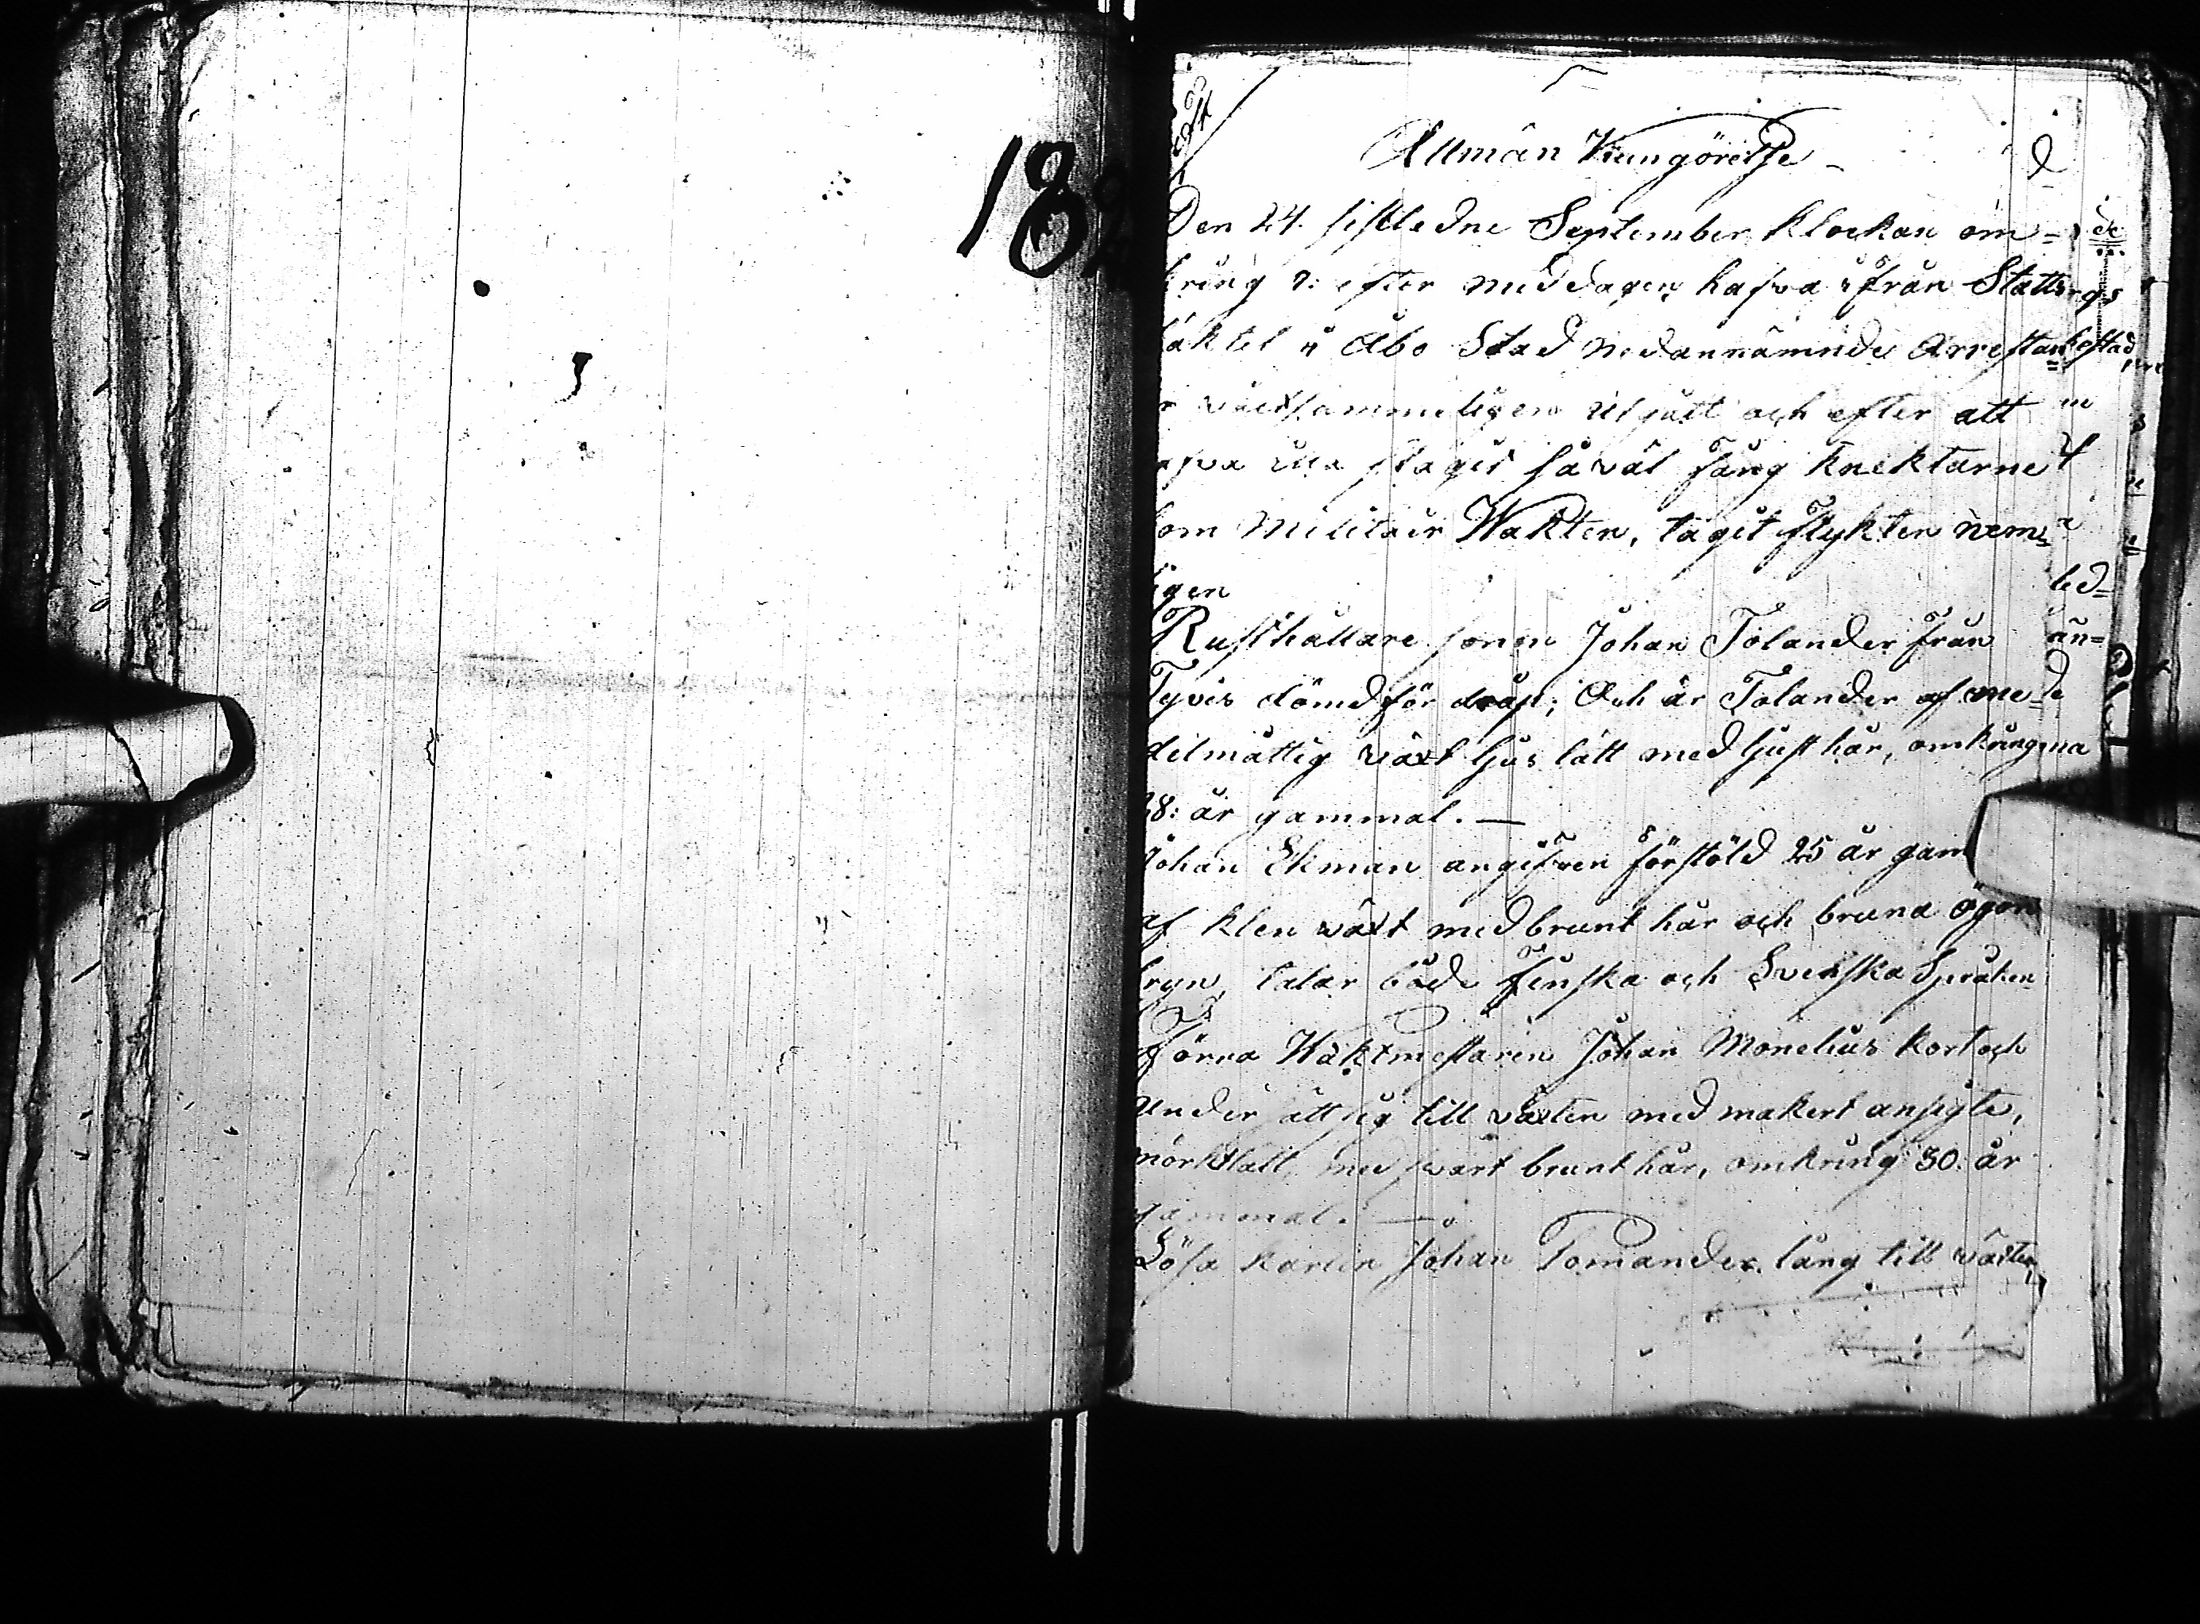 18
Allmän Kungörelse
Den 24. sistledne September klockan om=
kring 7: efter middagen hafva ifrån Slotts
häktet i Åbo Stad nedannämnde Arrestan=
r våldsammeligen utgått och efter att
afva illa slagit såväl fång knektarne
som Militair Wakten, tagit flykten nem=
ligen
Rusthållare sonen Johan Tolander från
Tyvis dömd för dråp; Och är Tolander af me=
delmåttig växt ljuslätt med ljust hår, omkring
38: år gammal. —
Johan Ekman angifven för stöld 25 år gam
af klen växt med brunt hår och bruna ögon
bryn, talar både finska och Svenska Språken
Förra Wäktmestaren Johan Monelius kort och
Undersättsig till växten med makert ansigte,
mörklätt, med svart brunt hår, omkring 30. år
gammal. —
Lösa karlen Johan Tomander lång till växten,